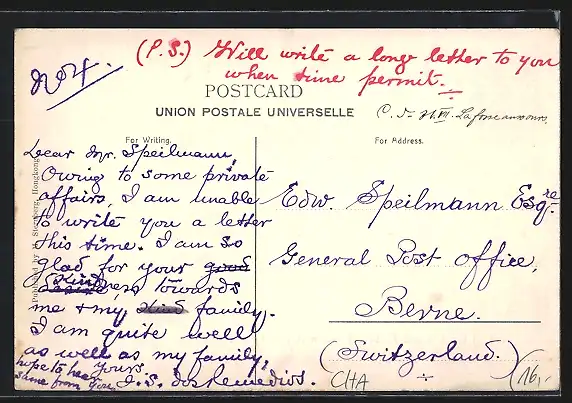 No 4.
(P.S.) Will write a long letter to you
when time permit.
POSTCARD
UNION POSTALE UNIVERSELLE
For Writing.
For Address.
Dear Mr. Speilmann,
Owing to some private
affairs, I am unable
to write you a letter
this time. I am so
glad for your good
kindness towards
me & my kind family.
I am quite well
as well as my family,
hope to hear yours
same from you. J. S. dos Remedios.
Edw. Speilmann Esqre
General Post office,
Berne.
(Switzerland.)
CHA
16,-
Hongkong